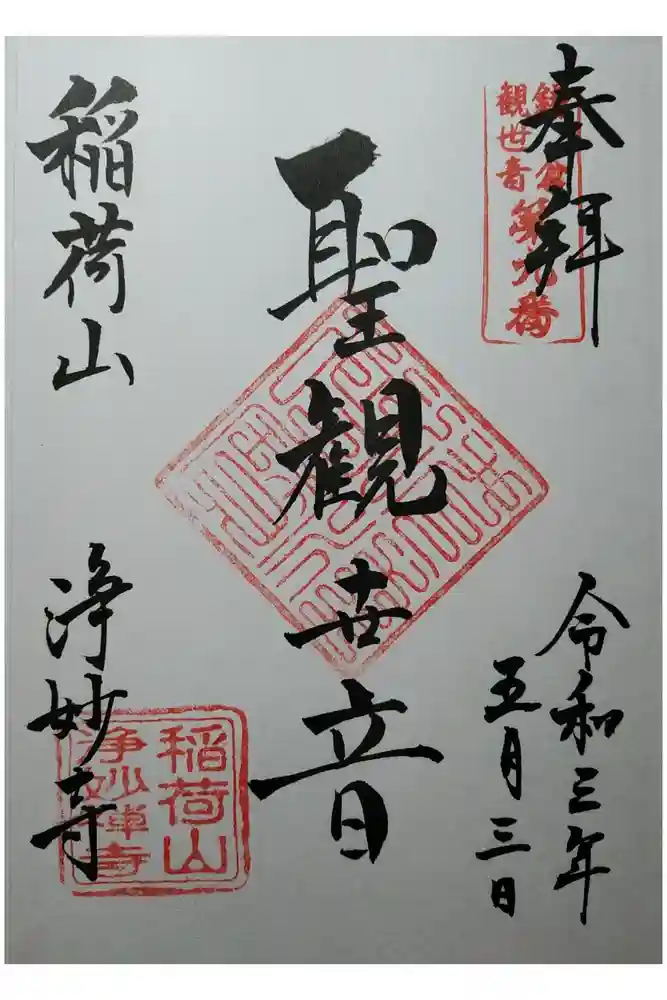 奉拝
観世音
第九番
令和三年
五月三日
聖観世音
稲荷山
浄妙寺
稲荷山
浄妙禅寺